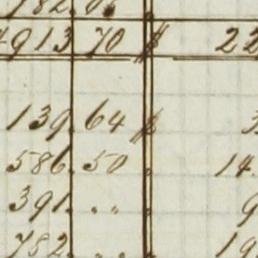 182.
4913 70 $ 22
139.64 $
586.50 14.
391. " " 9
782. " " 19